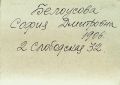 Белоусова
София Дмитриевна
1906
2 Слободская 32